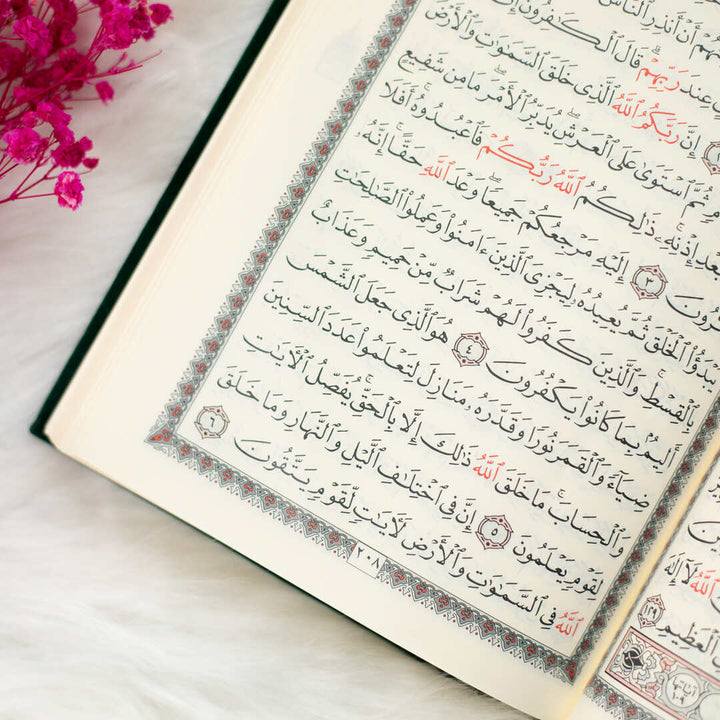 أَنْ أَنذِرِ ٱلنَّاسَ
عِندَ رَبِّهِمْ ۗ قَالَ ٱلْكَٰفِرُونَ إِنَّ
إِنَّ رَبَّكُمُ ٱللَّهُ ٱلَّذِى خَلَقَ ٱلسَّمَٰوَٰتِ وَٱلْأَرْضَ
ثُمَّ ٱسْتَوَىٰ عَلَى ٱلْعَرْشِ ۖ يُدَبِّرُ ٱلْأَمْرَ ۖ مَا مِن شَفِيعٍ
بَعْدِ إِذْنِهِۦ ۚ ذَٰلِكُمُ ٱللَّهُ رَبُّكُمْ فَٱعْبُدُوهُ ۚ أَفَلَا
رُونَ ٣ إِلَيْهِ مَرْجِعُكُمْ جَمِيعًا ۖ وَعْدَ ٱللَّهِ حَقًّا ۚ إِنَّهُۥ
يَبْدَؤُا۟ ٱلْخَلْقَ ثُمَّ يُعِيدُهُۥ لِيَجْزِىَ ٱلَّذِينَ ءَامَنُوا۟ وَعَمِلُوا۟ ٱلصَّٰلِحَٰتِ
بِٱلْقِسْطِ ۚ وَٱلَّذِينَ كَفَرُوا۟ لَهُمْ شَرَابٌ مِّنْ حَمِيمٍ وَعَذَابٌ
أَلِيمٌۢ بِمَا كَانُوا۟ يَكْفُرُونَ ٤ هُوَ ٱلَّذِى جَعَلَ ٱلشَّمْسَ
ضِيَآءً وَٱلْقَمَرَ نُورًا وَقَدَّرَهُۥ مَنَازِلَ لِتَعْلَمُوا۟ عَدَدَ ٱلسِّنِينَ
وَٱلْحِسَابَ ۚ مَا خَلَقَ ٱللَّهُ ذَٰلِكَ إِلَّا بِٱلْحَقِّ ۚ يُفَصِّلُ ٱلْءَايَٰتِ
لِقَوْمٍ يَعْلَمُونَ ٥ إِنَّ فِى ٱخْتِلَٰفِ ٱلَّيْلِ وَٱلنَّهَارِ وَمَا خَلَقَ
ٱللَّهُ فِى ٱلسَّمَٰوَٰتِ وَٱلْأَرْضِ لَءَايَٰتٍ لِّقَوْمٍ يَتَّقُونَ ٦
٢٠٨
ٱللَّهُ لَآ إِلَٰهَ
ٱلْعَظِيمِ ١٢٩
آياتها ١٠٩